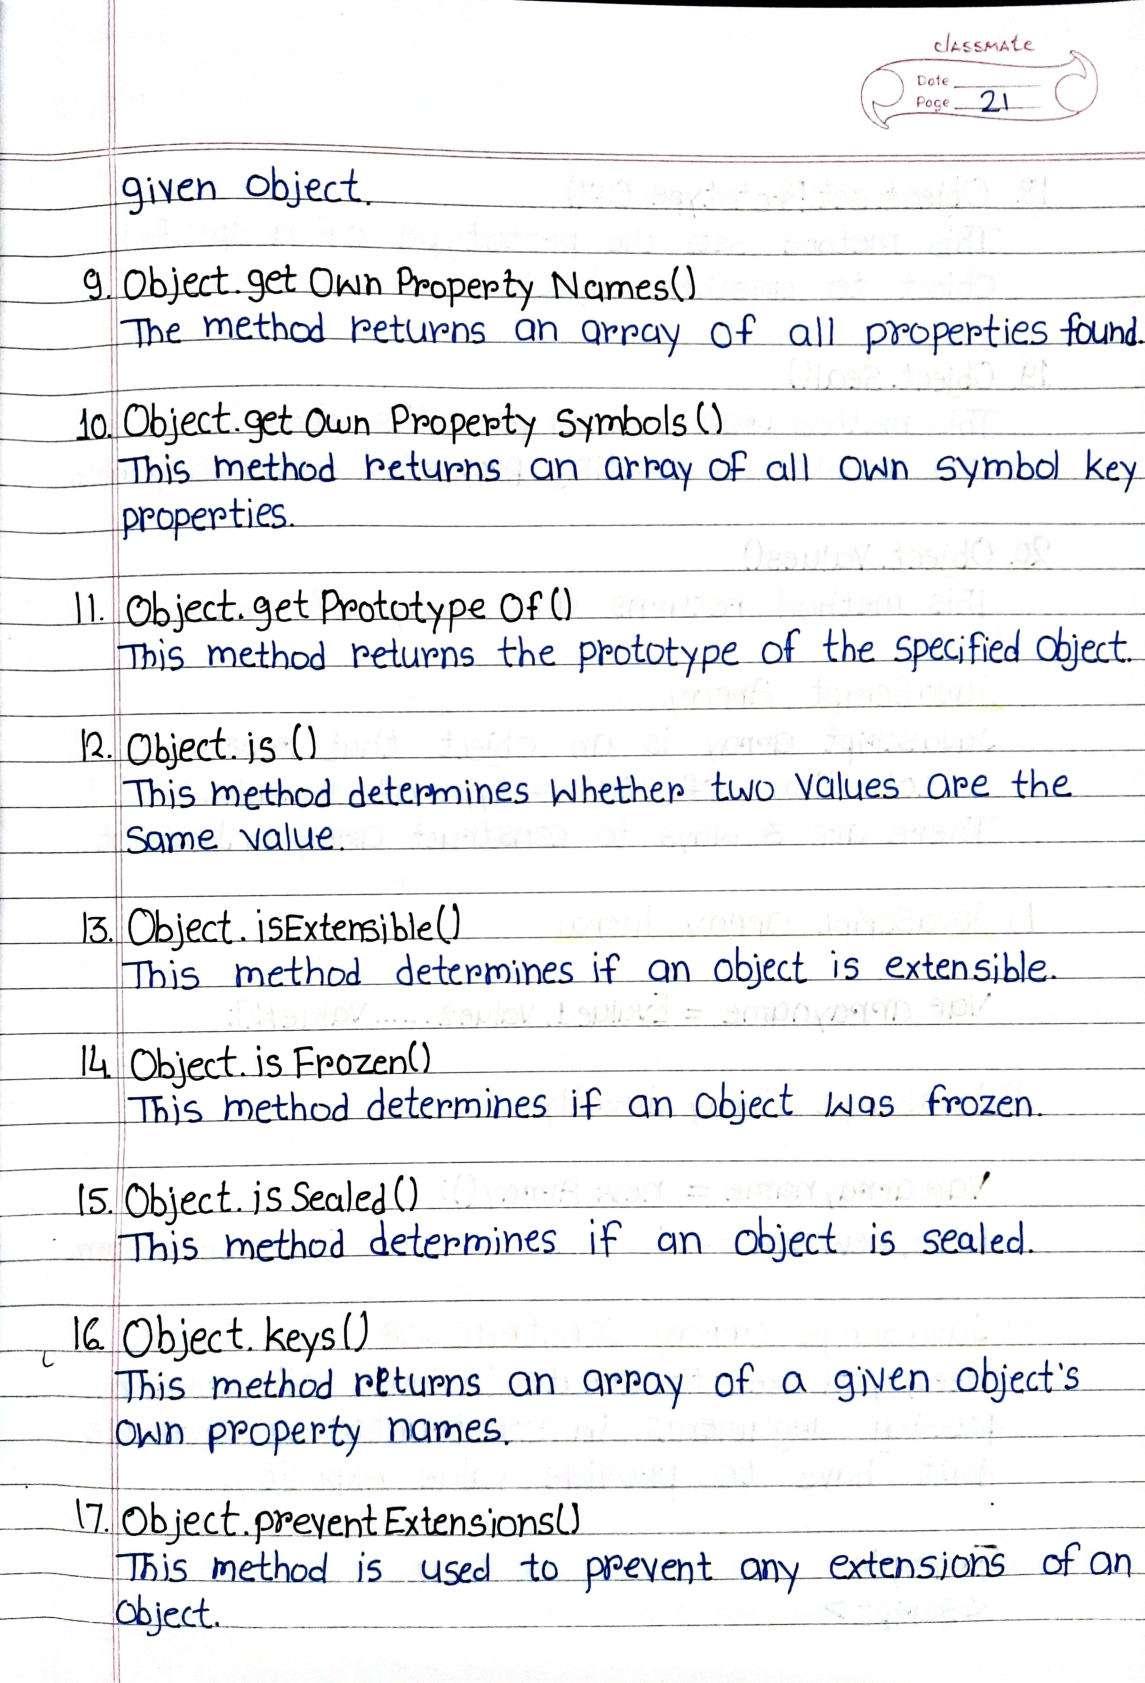 classmate
Date
Page 21
given object.
9. Object.get Own Property Names()
The method returns an array of all properties found.
10. Object.get Own Property Symbols()
This method returns an array of all own symbol key
properties.
11. Object.get Prototype Of()
This method returns the prototype of the specified object.
12. Object.is ()
This method determines whether two values are the
same value.
13. Object.isExtensible()
This method determines if an object is extensible.
14. Object.is Frozen()
This method determines if an object was frozen.
15. Object.is Sealed()
This method determines if an object is sealed.
16. Object.keys()
This method returns an array of a given object's
own property names.
17. Object.prevent Extensions()
This method is used to prevent any extensions of an
object.